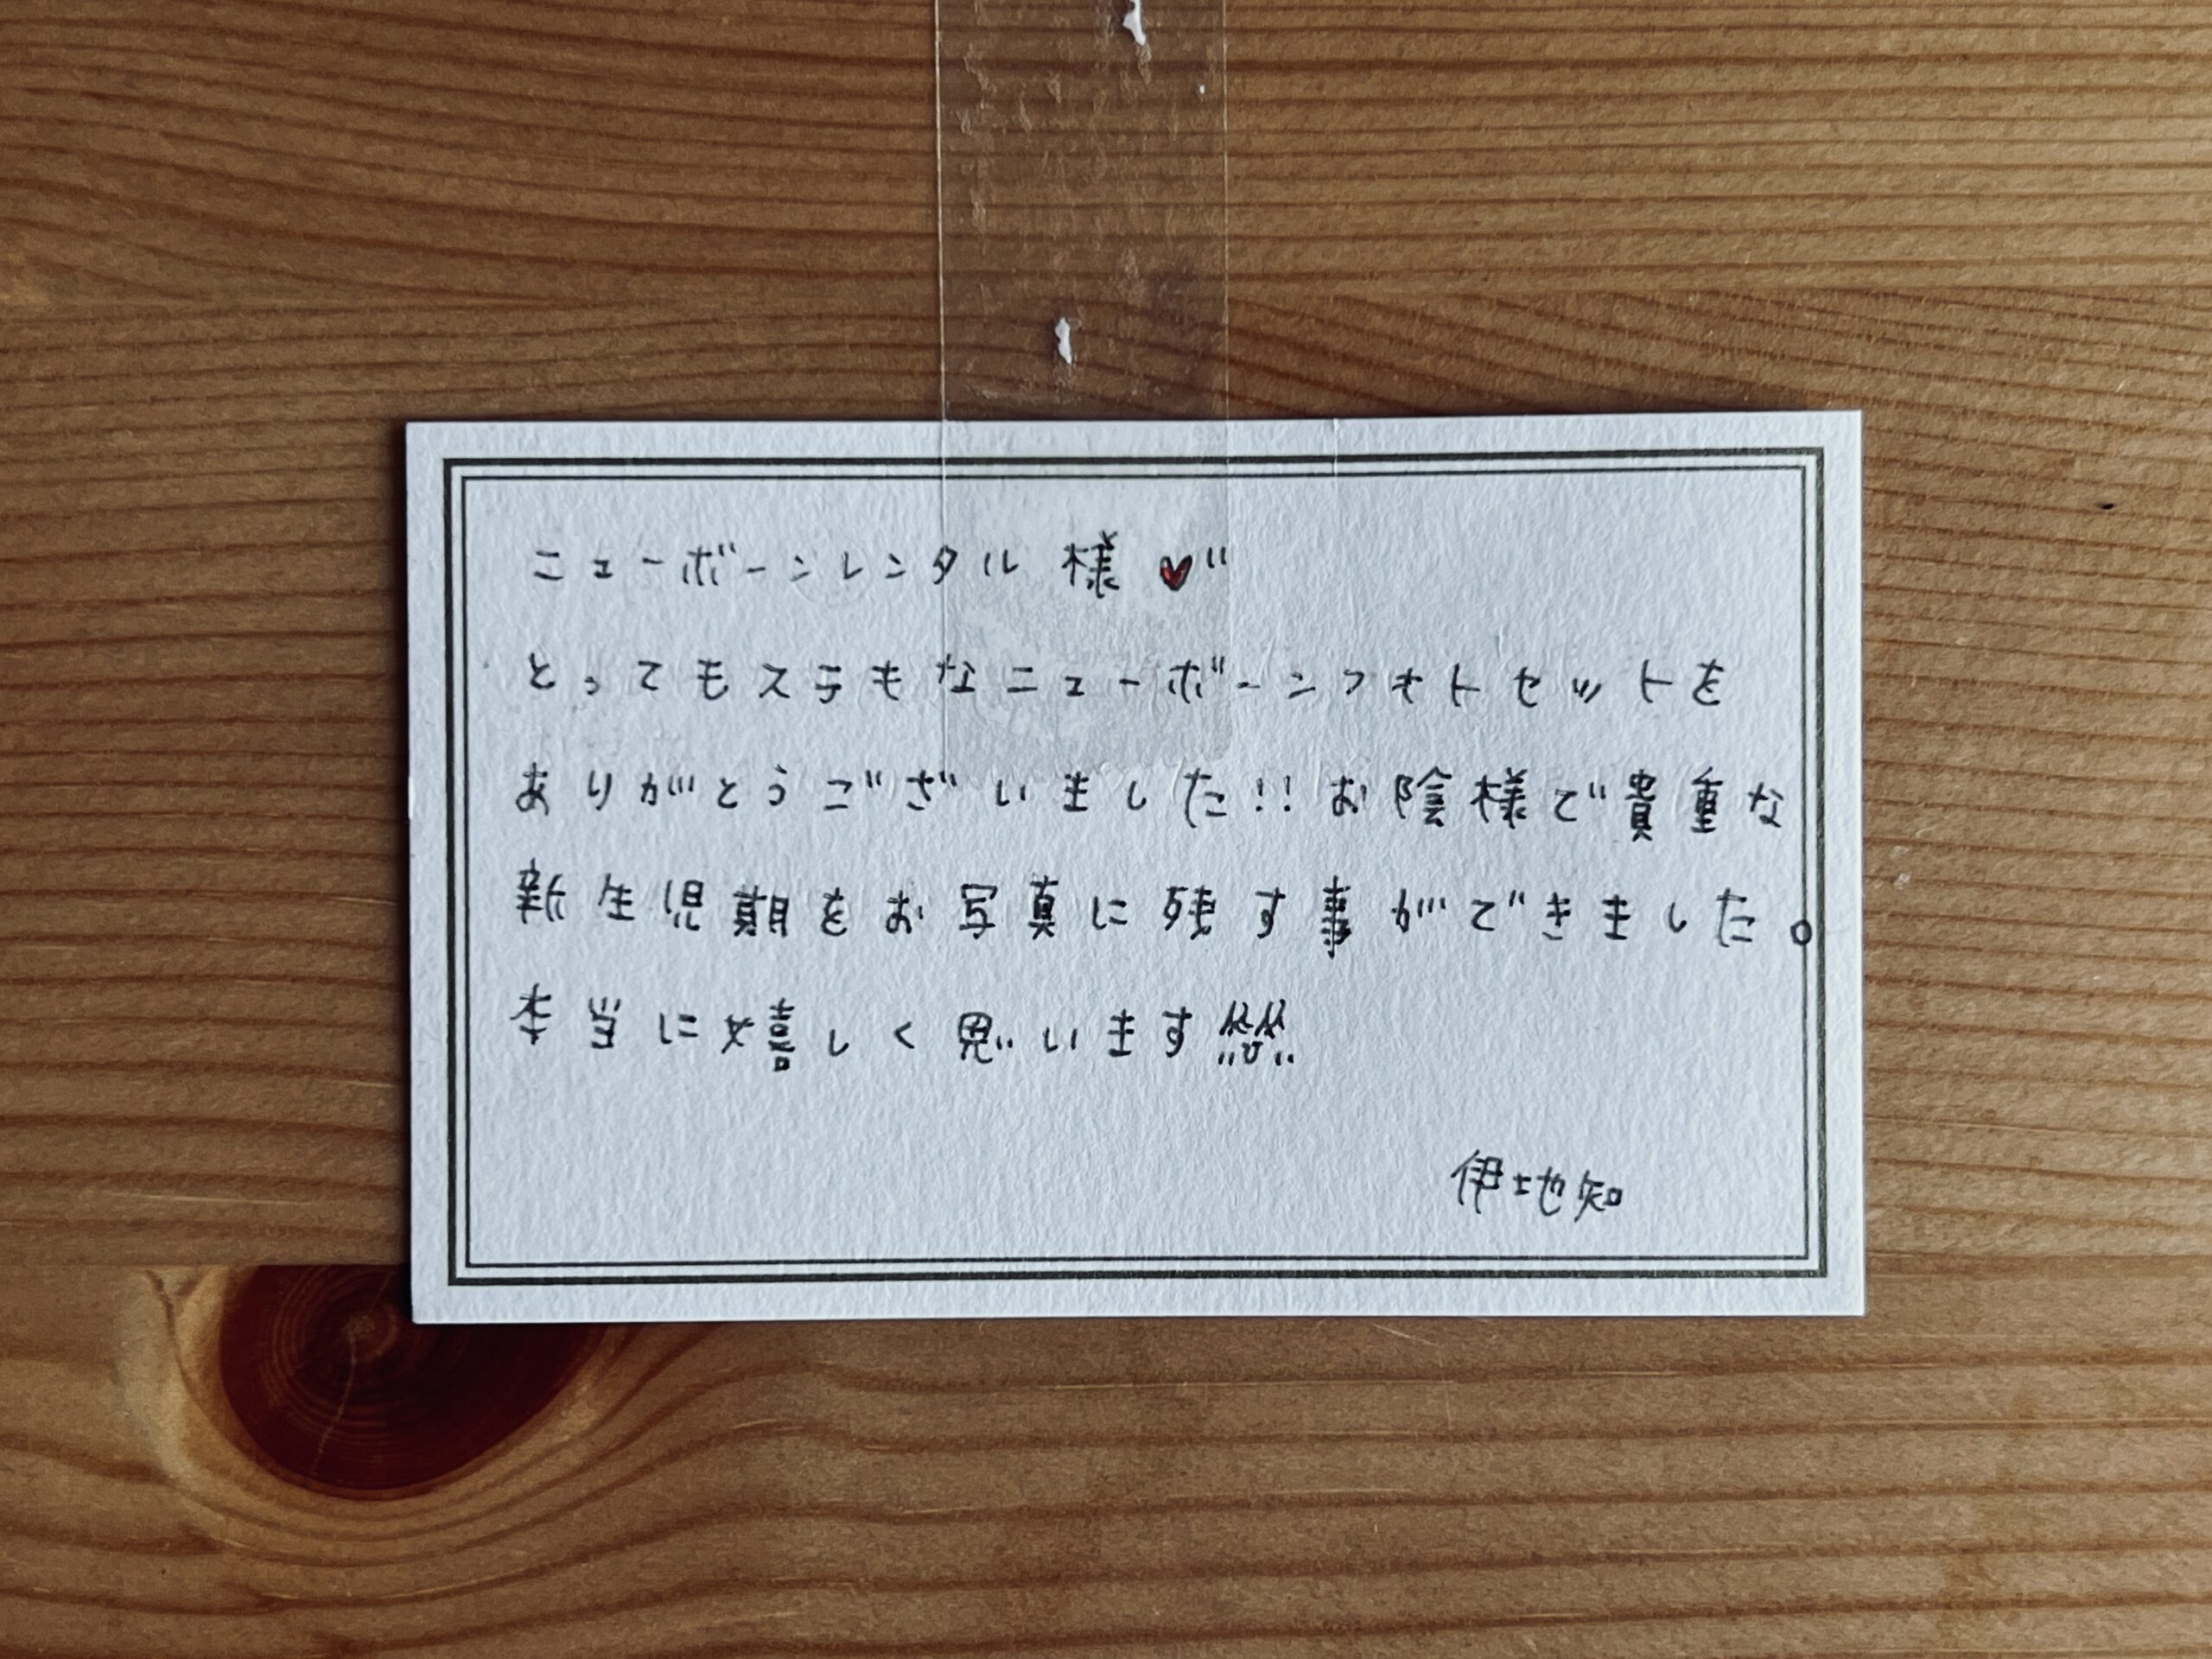 ニューボーンレンタル 様 ♥"
とってもステキなニューボーンフォトセットを
ありがとうございました!! お陰様で貴重な
新生児期をお写真に残す事ができました。
本当に嬉しく思います
伊地知